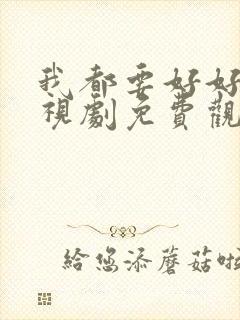 我都要好好
視劇免費觀
給您添蘑菇啦